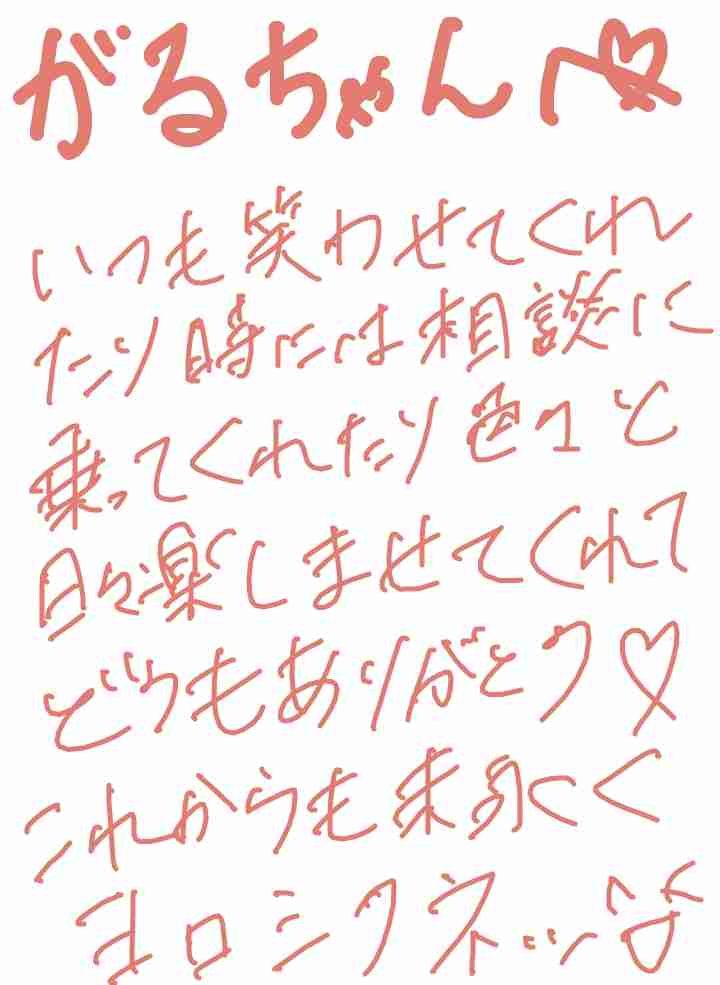 がるちゃんへ♡
いつも笑わせてくれ
たり時には相談に
乗ってくれたり色々と
日々楽しませてくれて
どうもありがとう♡
これからも末永く
ヨロシクネッ